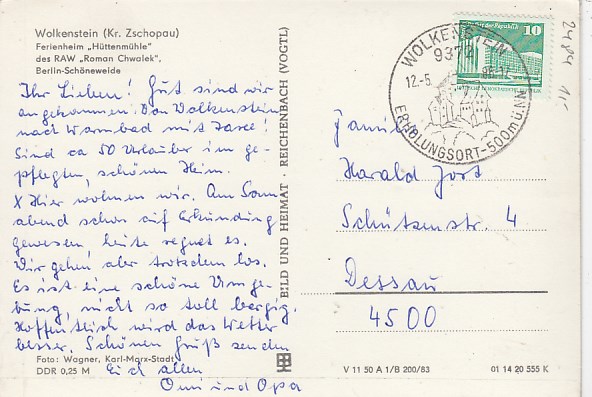 Wolkenstein (Kr. Zschopau)
Ferienheim „Hüttenmühle"
des RAW „Roman Chwalek",
Berlin-Schöneweide
Ihr Lieben! Gut sind wir
angekommen. Von Wolkenstein
nach Warmbad mit Taxe!
Sind ca 50 Urlauber im ge-
pflegten, schönen Heim.
X Hier wohnen wir. Am Sonn
abend schon auf Erkundung
gewesen, heute regnet es.
Wir gehen aber trotzdem los.
Es ist eine schöne Umge-
bung, nicht so toll bergig.
Hoffentlich wird das Wetter
besser. Schönen Gruß senden
Euch allen
Omi und Opa
Foto: Wagner, Karl-Marx-Stadt
DDR 0,25 M
BILD UND HEIMAT · REICHENBACH (VOGTL)
WOLKENSTEIN
9372
12.-5.
86-12
ERHOLUNGSORT-500m ü. NN
10
Familie
Harald Jort
Schützenstr. 4
Dessau
4500
V 11 50 A 1/B 200/83
01 14 20 555 K